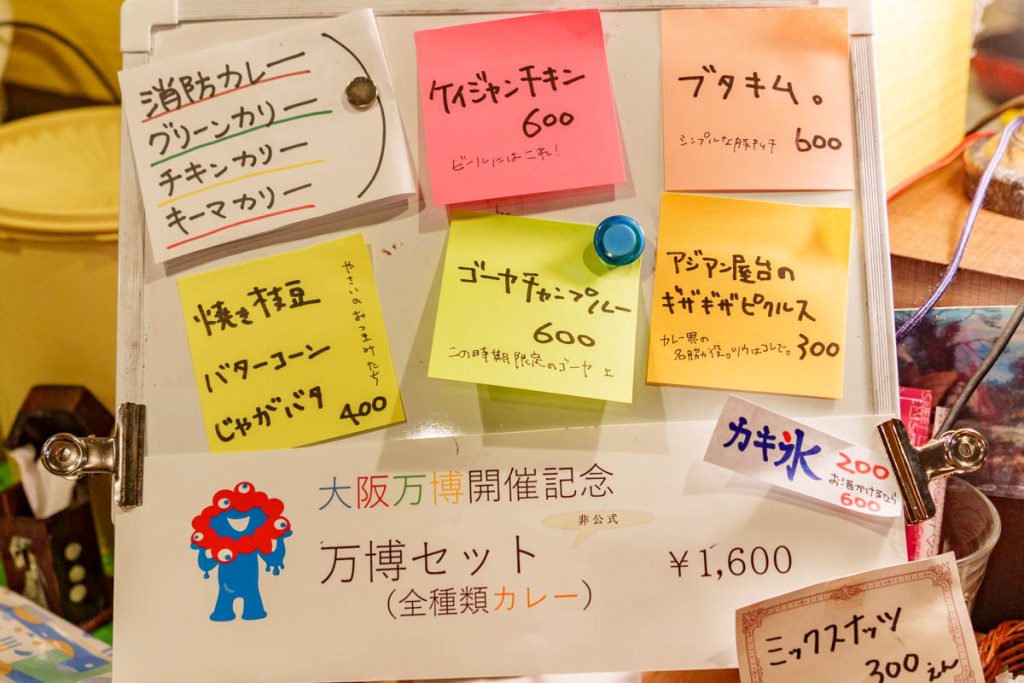 消防カレー
グリーンカリー
チキンカリー
キーマカリー
ケイジャンチキン
600
ビールにはこれ!
ブタキム。
シンプルな豚キムチ 600
焼き枝豆
バターコーン
じゃがバタ 400
やさいのおつまみたち
ゴーヤチャンプルー
600
この時期限定のゴーヤ
アジアン屋台の
ギザギザピクルス
カレー界の
名脇役。ツウはコレで。 300
カキ氷 200
お酒かけるなら
600
大阪万博開催記念
非公式
万博セット ¥1,600
(全種類カレー)
ミックスナッツ
300えん